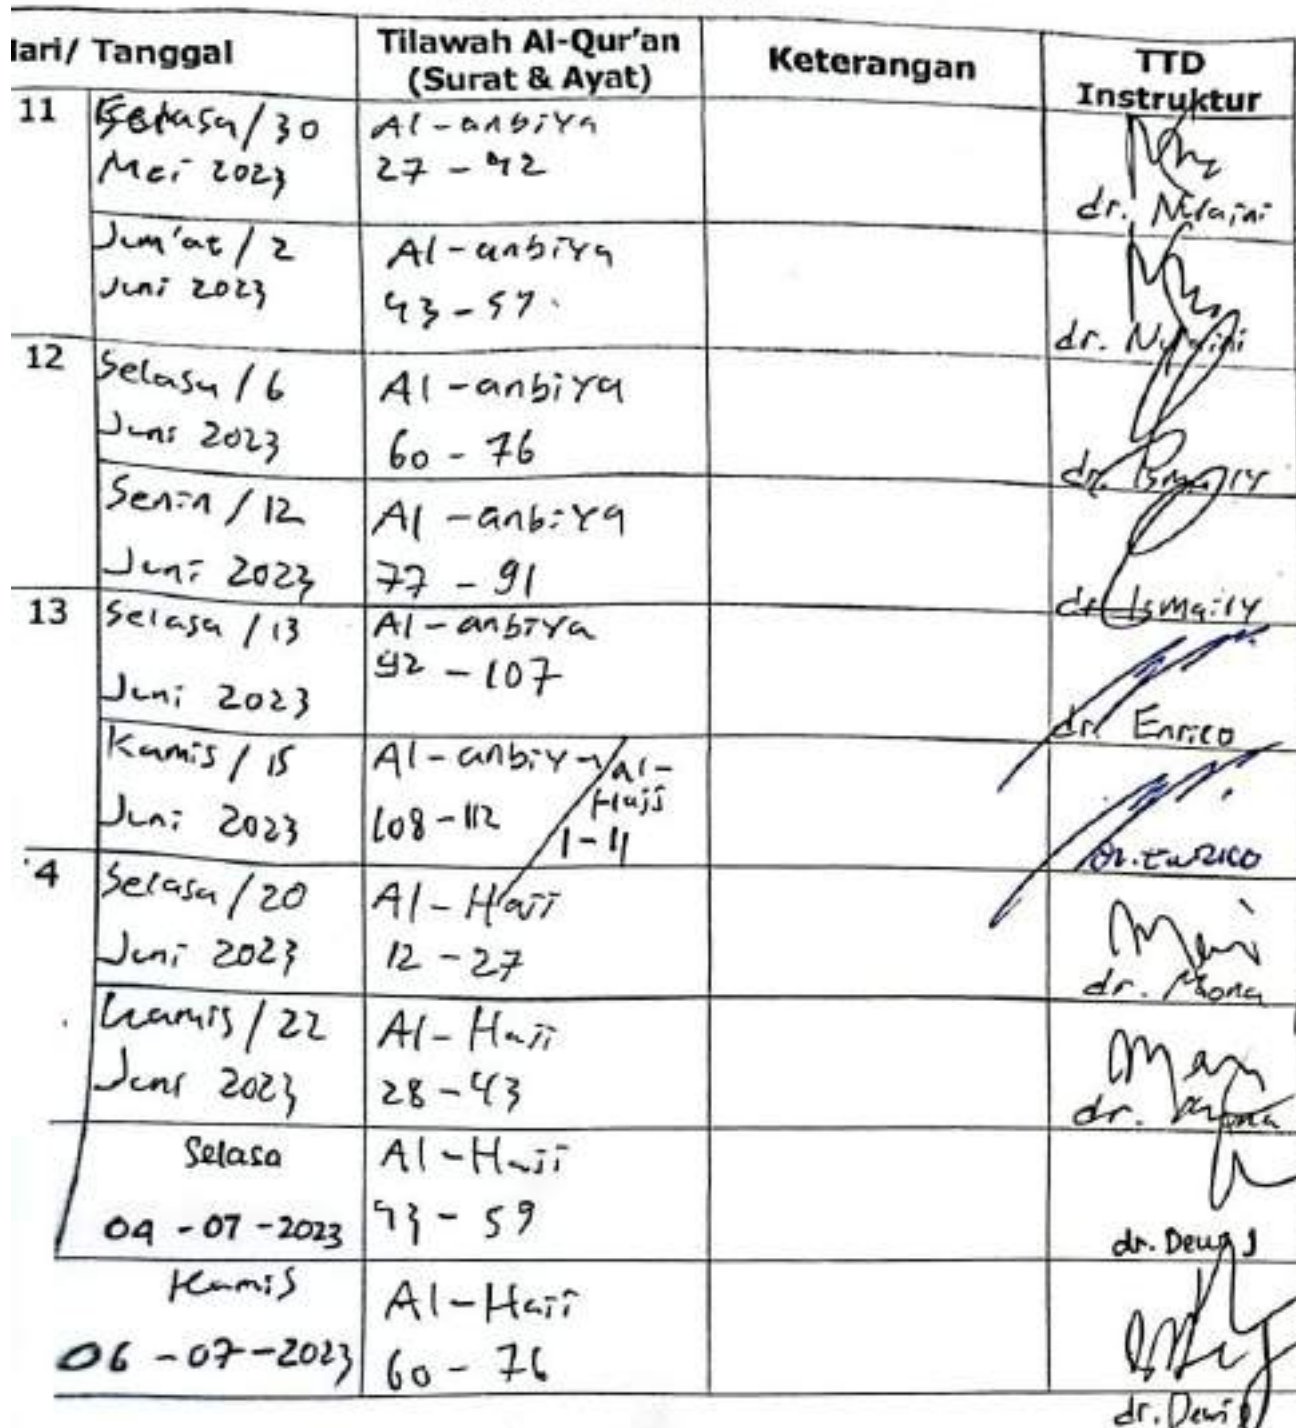 Hari/ Tanggal
Tilawah Al-Qur'an
(Surat & Ayat)
Keterangan
TTD
Instruktur
11
Selasa / 30
Mei 2023
Al-anbiya
27 - 42
dr. Nuraini
Jum'at / 2
Juni 2023
Al-anbiya
43 - 57
dr. Nuraini
12
Selasa / 6
Juni 2023
Al-anbiya
60 - 76
dr. Ismaily
Senin / 12
Juni 2023
Al-anbiya
77 - 91
dr. Ismaily
13
Selasa / 13
Juni 2023
Al-anbiya
92 - 107
dr. Enrico
Kamis / 15
Juni 2023
Al-anbiya / al-
Hajj
108 - 112
1 - 11
Dr. Enrico
4
Selasa / 20
Juni 2023
Al-Hajj
12 - 27
dr. Mona
Kamis / 22
Juni 2023
Al-Hajj
28 - 43
dr.
Selasa
04 - 07 - 2023
Al-Hajj
43 - 59
dr. Dewi
Kamis
06 - 07 - 2023
Al-Hajj
60 - 76
dr. Dewi